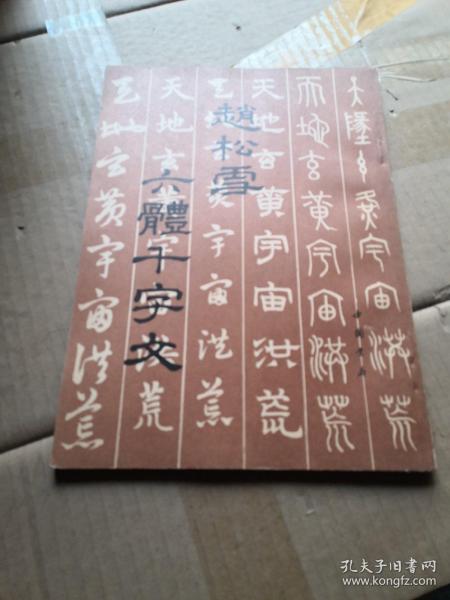 天地玄黄宇宙洪荒
而地玄黄宇宙洪荒
天地玄黄宇宙洪荒
天地玄黄宇宙洪荒
天地玄黄宇宙洪荒
天地玄黄宇宙洪荒
趙松雪
六體千字文
中國書店
孔夫子旧书网
www.kongfz.com